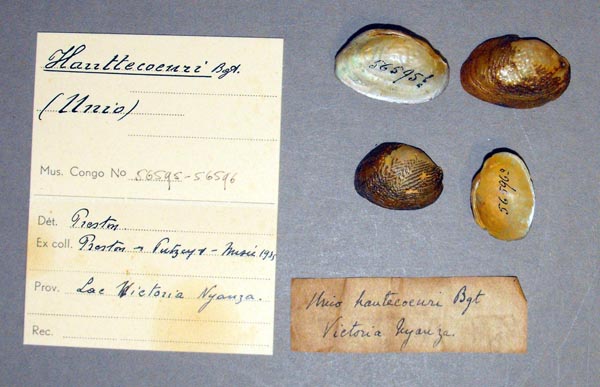 Hauttecoeuri Bgt.
(Unio)
Mus. Congo No 56595-56596
Dét. Preston
Ex coll. Preston → Putzeys - Musée 193
Prov. Lac Victoria Nyanza.
Rec.
56595
56596
Unio hautecoeuri Bgt
Victoria Nyanza.